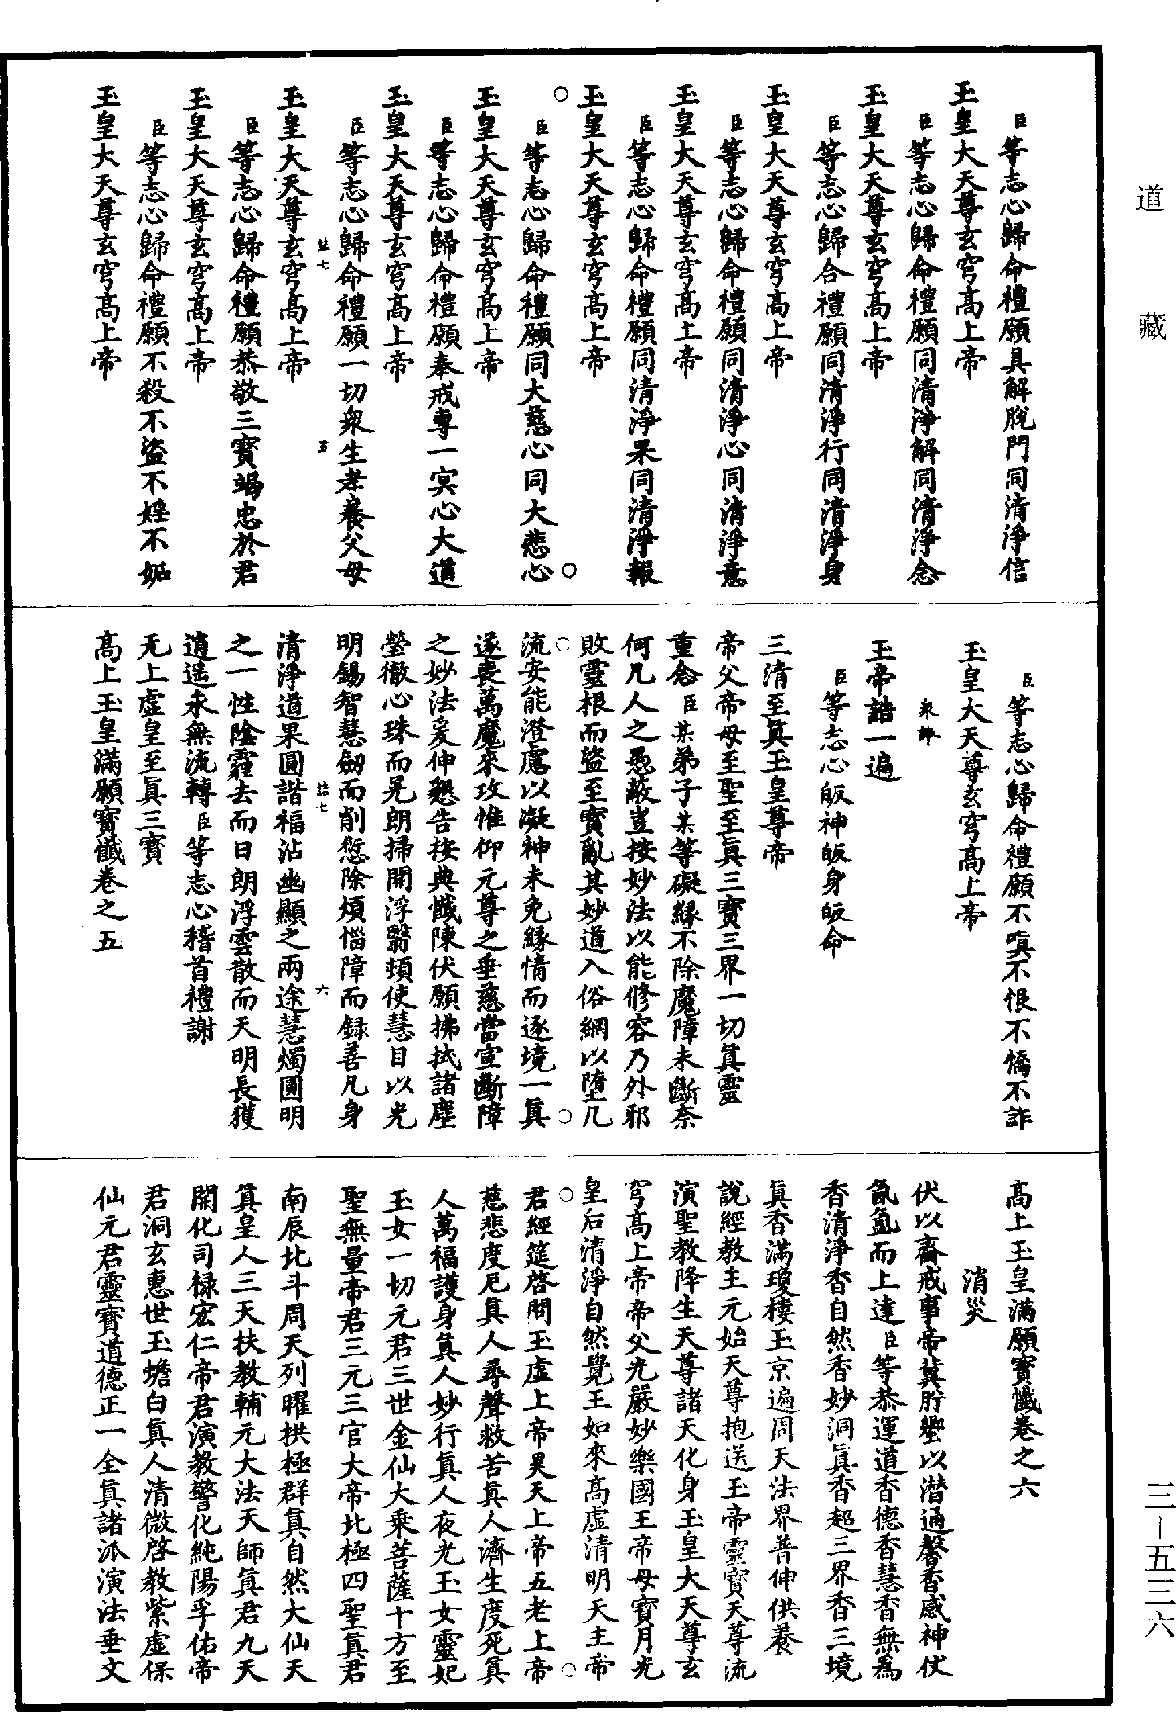 道藏
臣等志心歸命禮願具解脫門同清淨信
玉皇大天尊玄穹高上帝
臣等志心歸命禮願同清淨解同清淨念
玉皇大天尊玄穹高上帝
臣等志心歸合禮願同清淨行同清淨身
玉皇大天尊玄穹高上帝
臣等志心歸命禮願同清淨心同清淨意
玉皇大天尊玄穹高上帝
臣等志心歸命禮願同清淨果同清淨報
玉皇大天尊玄穹高上帝
臣等志心歸命禮願同大慈心同大悲心
玉皇大天尊玄穹高上帝
臣等志心歸命禮願奉戒專一冥心大道
玉皇大天尊玄穹高上帝
臣等志心歸命禮願一切衆生孝養父母
七 五
玉皇大天尊玄穹高上帝
臣等志心歸命禮願恭敬三寶竭忠於君
玉皇大天尊玄穹高上帝
臣等志心歸命禮願不殺不盜不婬不妬
玉皇大天尊玄穹高上帝
臣等志心歸命禮願不嗔不恨不憍不詐
玉皇大天尊玄穹高上帝
玉帝誥一遍
臣等志心皈神皈身皈命
三清至眞玉皇尊帝
帝父帝母至聖至眞三寶三界一切眞靈
重念臣某弟子某等礙緣不除魔障未斷奈
何凡人之愚蔽豈按妙法以能修容乃外邪
敗靈根而盜至寶亂其妙道入俗網以墮凡
流安能澄慮以凝神未免緣情而逐境一眞
遂喪萬魔來攻惟仰元尊之垂慈當宣斷障
之妙法爰伸懇告按典懺陳伏願拂拭諸塵
瑩徹心珠而晃朗掃開浮翳頓使慧目以光
明錫智慧劒而削愆除煩惱障而録善凡身
七 六
清淨道果圓諧福沾幽顯之兩途慧燭圓明
之一性陰霾去而日朗浮雲散而天明長獲
逍遙永無流轉臣等志心稽首禮謝
无上虛皇至眞三寶
高上玉皇滿願寶懺卷之五
高上玉皇滿願寶懺卷之六
消災
伏以齋戒事帝冀肸蠁以潛通馨香感神仗
氤氳而上達臣等恭運道香德香慧香無爲
香清淨香自然香妙洞眞香超三界香三境
眞香滿瓊樓玉京遍周天法界普伸供養
說經教主元始天尊抱送玉帝靈寶天尊流
演聖教降生天尊諸天化身玉皇大天尊玄
穹高上帝帝父光嚴妙樂國王帝母寶月光
皇后清淨自然覺王如來高虛清明天主帝
君經筵啓問玉虛上帝昊天上帝五老上帝
慈悲度厄眞人尋聲救苦眞人濟生度死眞
人萬福護身眞人妙行眞人夜光玉女靈妃
玉女一切元君三世金仙大乘菩薩十方至
聖無量帝君三元三官大帝北極四聖眞君
南辰北斗周天列曜拱極群眞自然大仙天
眞皇人三天扶教輔元大法天師眞君九天
開化司祿宏仁帝君演教警化純陽孚佑帝
君洞玄惠世玉蟾白眞人清微啓教紫虛保
仙元君靈寶道德正一全眞諸派演法垂文
三－五三六